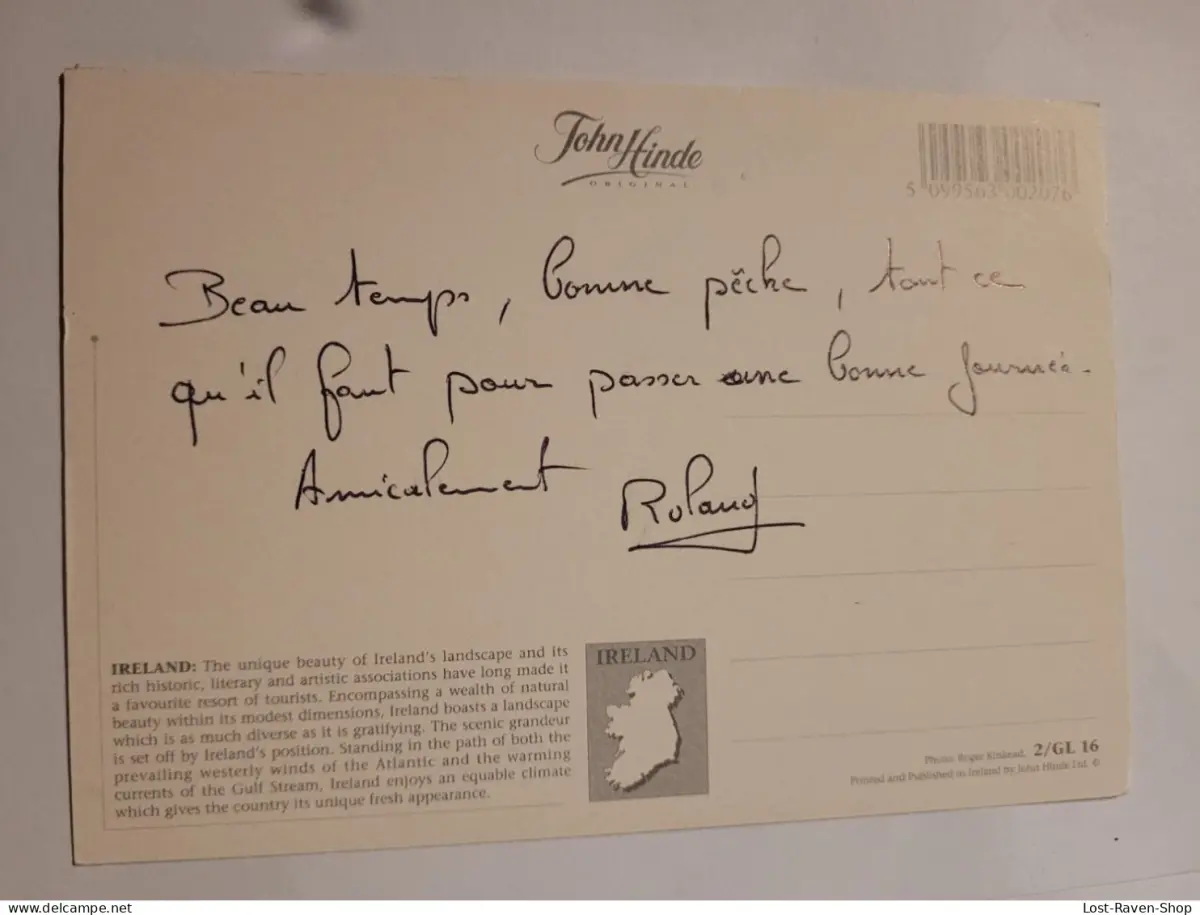 John Hinde
ORIGINAL
5 099563 002076
Beau temps, bonne pêche, tout ce
qu'il faut pour passer une bonne journée.
Amicalement Roland
IRELAND: The unique beauty of Ireland's landscape and its
rich historic, literary and artistic associations have long made it
a favourite resort of tourists. Encompassing a wealth of natural
beauty within its modest dimensions, Ireland boasts a landscape
which is as much diverse as it is gratifying. The scenic grandeur
is set off by Ireland's position. Standing in the path of both the
prevailing westerly winds of the Atlantic and the warming
currents of the Gulf Stream, Ireland enjoys an equable climate
which gives the country its unique fresh appearance.
IRELAND
Photo: Roger Kinkead. 2/GL 16
Printed and Published in Ireland by John Hinde Ltd. ©
www.delcampe.net
Lost-Raven-Shop